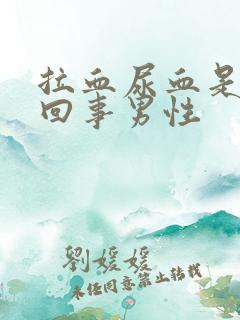 拉血尿血是
回事男性
劉媛媛
未经同意禁止转载